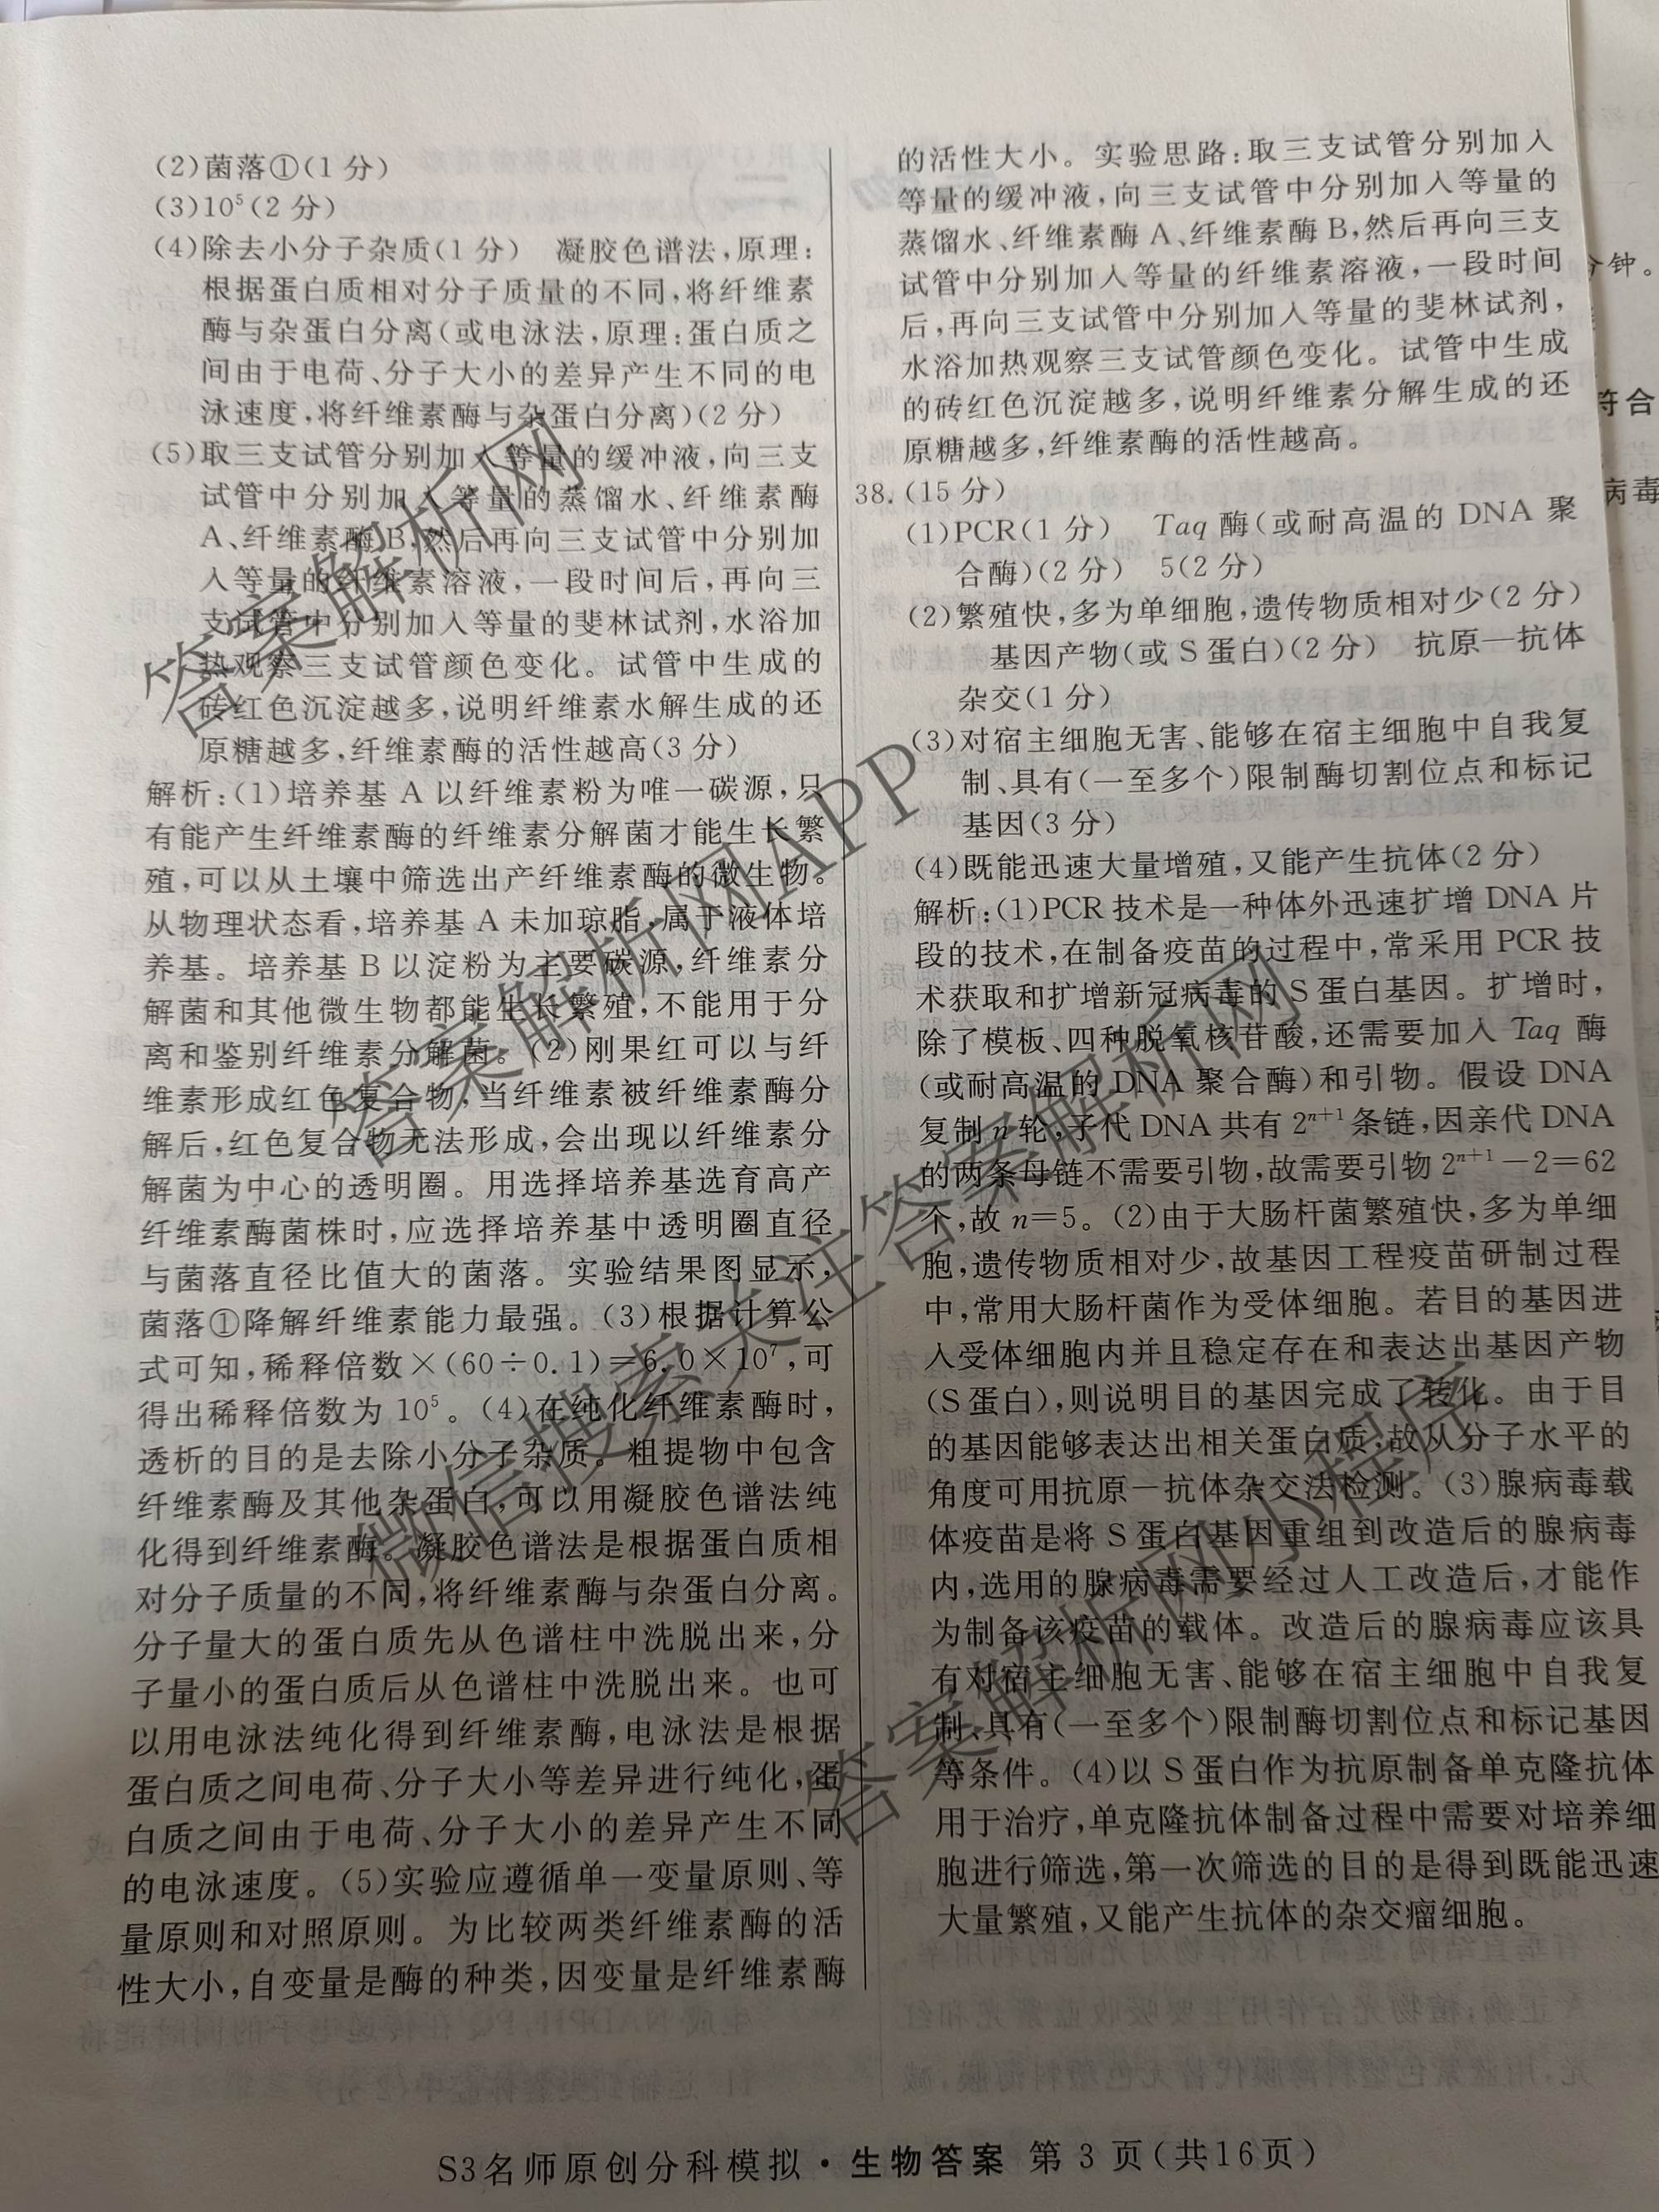 (2)菌落①(1分)
(3)10⁵(2分)
(4)除去小分子杂质(1分) 凝胶色谱法,原理:
根据蛋白质相对分子质量的不同,将纤维素
酶与杂蛋白分离(或电泳法,原理:蛋白质之
间由于电荷、分子大小的差异产生不同的电
泳速度,将纤维素酶与杂蛋白分离)(2分)
(5)取三支试管分别加入等量的缓冲液,向三支
试管中分别加入等量的蒸馏水、纤维素酶
A、纤维素酶B,然后再向三支试管中分别加
入等量的纤维素溶液,一段时间后,再向三
支试管中分别加入等量的斐林试剂,水浴加
热观察三支试管颜色变化。试管中生成的
砖红色沉淀越多,说明纤维素水解生成的还
原糖越多,纤维素酶的活性越高(3分)
解析:(1)培养基A以纤维素粉为唯一碳源,只
有能产生纤维素酶的纤维素分解菌才能生长繁
殖,可以从土壤中筛选出产纤维素酶的微生物。
从物理状态看,培养基A未加琼脂,属于液体培
养基。培养基B以淀粉为主要碳源,纤维素分
解菌和其他微生物都能生长繁殖,不能用于分
离和鉴别纤维素分解菌。(2)刚果红可以与纤
维素形成红色复合物,当纤维素被纤维素酶分
解后,红色复合物无法形成,会出现以纤维素分
解菌为中心的透明圈。用选择培养基选育高产
纤维素酶菌株时,应选择培养基中透明圈直径
与菌落直径比值大的菌落。实验结果图显示,
菌落①降解纤维素能力最强。(3)根据计算公
式可知,稀释倍数×(60÷0.1)=6.0×10⁷,可
得出稀释倍数为10⁵。(4)在纯化纤维素酶时,
透析的目的是去除小分子杂质。粗提物中包含
纤维素酶及其他杂蛋白,可以用凝胶色谱法纯
化得到纤维素酶。凝胶色谱法是根据蛋白质相
对分子质量的不同,将纤维素酶与杂蛋白分离。
分子量大的蛋白质先从色谱柱中洗脱出来,分
子量小的蛋白质后从色谱柱中洗脱出来。也可
以用电泳法纯化得到纤维素酶,电泳法是根据
蛋白质之间电荷、分子大小等差异进行纯化,蛋
白质之间由于电荷、分子大小的差异产生不同
的电泳速度。(5)实验应遵循单一变量原则、等
量原则和对照原则。为比较两类纤维素酶的活
性大小,自变量是酶的种类,因变量是纤维素酶
的活性大小。实验思路:取三支试管分别加入
等量的缓冲液,向三支试管中分别加入等量的
蒸馏水、纤维素酶A、纤维素酶B,然后再向三支
试管中分别加入等量的纤维素溶液,一段时间
后,再向三支试管中分别加入等量的斐林试剂,
水浴加热观察三支试管颜色变化。试管中生成
的砖红色沉淀越多,说明纤维素分解生成的还
原糖越多,纤维素酶的活性越高。
38.(15分)
(1)PCR(1分) Taq酶(或耐高温的DNA聚
合酶)(2分) 5(2分)
(2)繁殖快,多为单细胞,遗传物质相对少(2分)
基因产物(或S蛋白)(2分) 抗原—抗体
杂交(1分)
(3)对宿主细胞无害、能够在宿主细胞中自我复
制、具有(一至多个)限制酶切割位点和标记
基因(3分)
(4)既能迅速大量增殖,又能产生抗体(2分)
解析:(1)PCR技术是一种体外迅速扩增DNA片
段的技术,在制备疫苗的过程中,常采用PCR技
术获取和扩增新冠病毒的S蛋白基因。扩增时,
除了模板、四种脱氧核苷酸,还需要加入Taq酶
(或耐高温的DNA聚合酶)和引物。假设DNA
复制n轮,子代DNA共有2ⁿ⁺¹条链,因亲代DNA
的两条母链不需要引物,故需要引物2ⁿ⁺¹-2=62
个,故n=5。(2)由于大肠杆菌繁殖快,多为单细
胞,遗传物质相对少,故基因工程疫苗研制过程
中,常用大肠杆菌作为受体细胞。若目的基因进
入受体细胞内并且稳定存在和表达出基因产物
(S蛋白),则说明目的基因完成了转化。由于目
的基因能够表达出相关蛋白质,故从分子水平的
角度可用抗原—抗体杂交法检测。(3)腺病毒载
体疫苗是将S蛋白基因重组到改造后的腺病毒
内,选用的腺病毒需要经过人工改造后,才能作
为制备该疫苗的载体。改造后的腺病毒应该具
有对宿主细胞无害、能够在宿主细胞中自我复
制、具有(一至多个)限制酶切割位点和标记基因
等条件。(4)以S蛋白作为抗原制备单克隆抗体
用于治疗,单克隆抗体制备过程中需要对培养细
胞进行筛选,第一次筛选的目的是得到既能迅速
大量繁殖,又能产生抗体的杂交瘤细胞。
钟。
符合
病毒
答案解析网
答案解析网APP
微信搜索关注答案解析网
答案解析网小程序
S3名师原创分科模拟·生物答案 第3页(共16页)